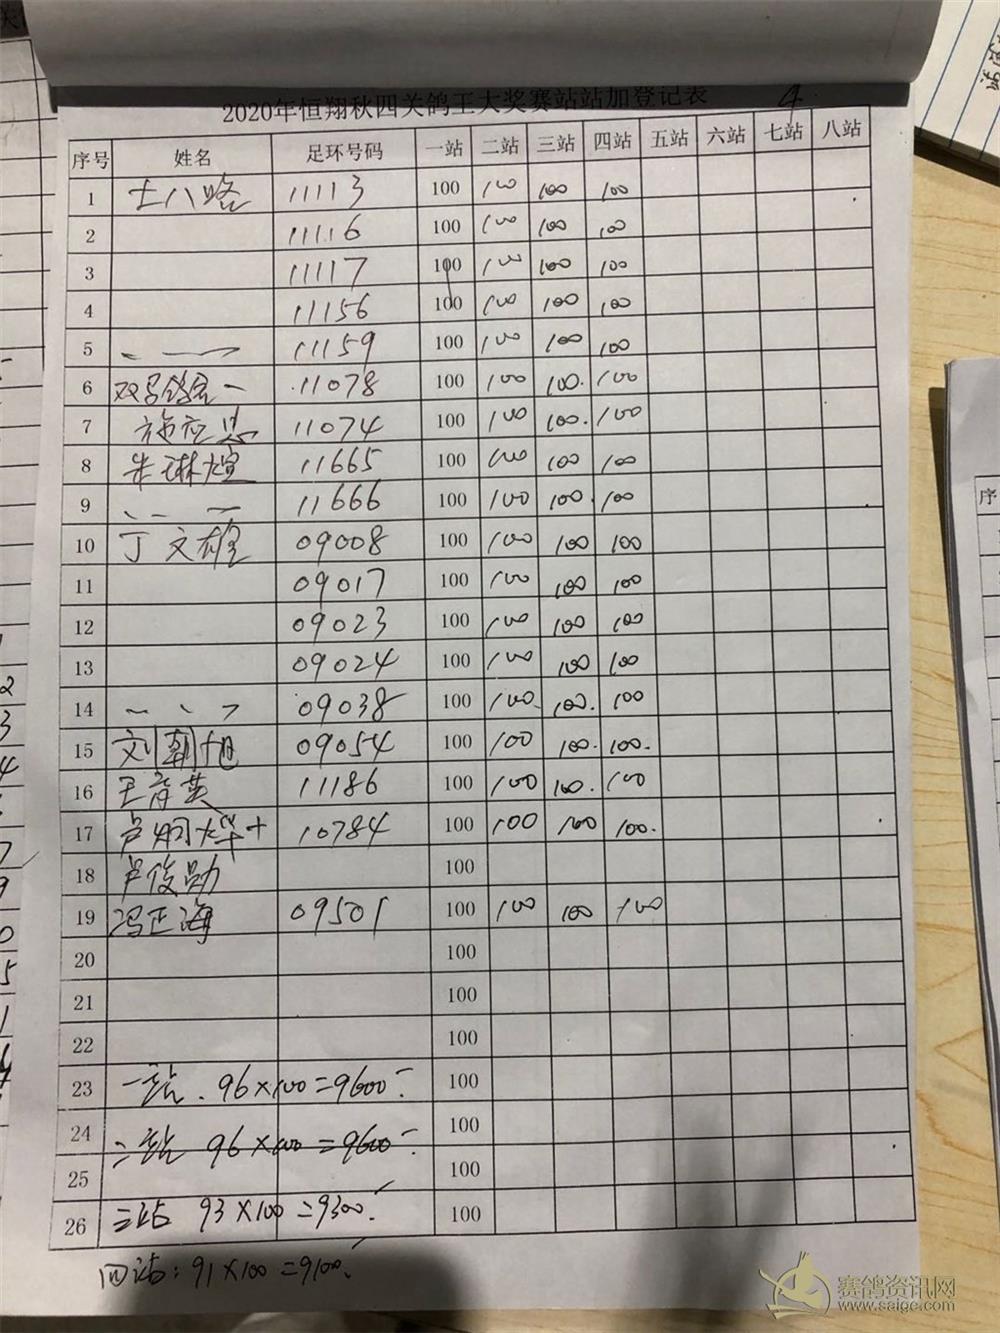 2020年恒翔秋四关鸽王大奖赛站站加登记表 4
序号 姓名 足环号码 一站 二站 三站 四站 五站 六站 七站 八站
1 士八略 11113 100 100 100 100
2 11116 100 100 100 100
3 11117 100 100 100 100
4 11156 100 100 100 100
5 11159 100 100 100 100
6 一 11078 100 100 100 100
7 施应忠 11074 100 100 100 100
8 朱琳煊 11665 100 100 100 100
9 11666 100 100 100 100
10 丁文雄 09008 100 100 100 100
11 09017 100 100 100 100
12 09023 100 100 100 100
13 09024 100 100 100 100
14 09038 100 100 100 100
15 刘朝旭 09054 100 100 100 100
16 王育英 11186 100 100 100 100
17 卢炯烨+ 10784 100 100 100 100
18 卢俊勋 100
19 冯正海 09501 100 100 100 100
20 100
21 100
22 100
23 一站. 96×100=9600 100
24 二站 96×100=9600 100
25 100
26 三站 93×100=9300. 100
四站: 91×100=9100.
赛鸽资讯网
www.saige.com